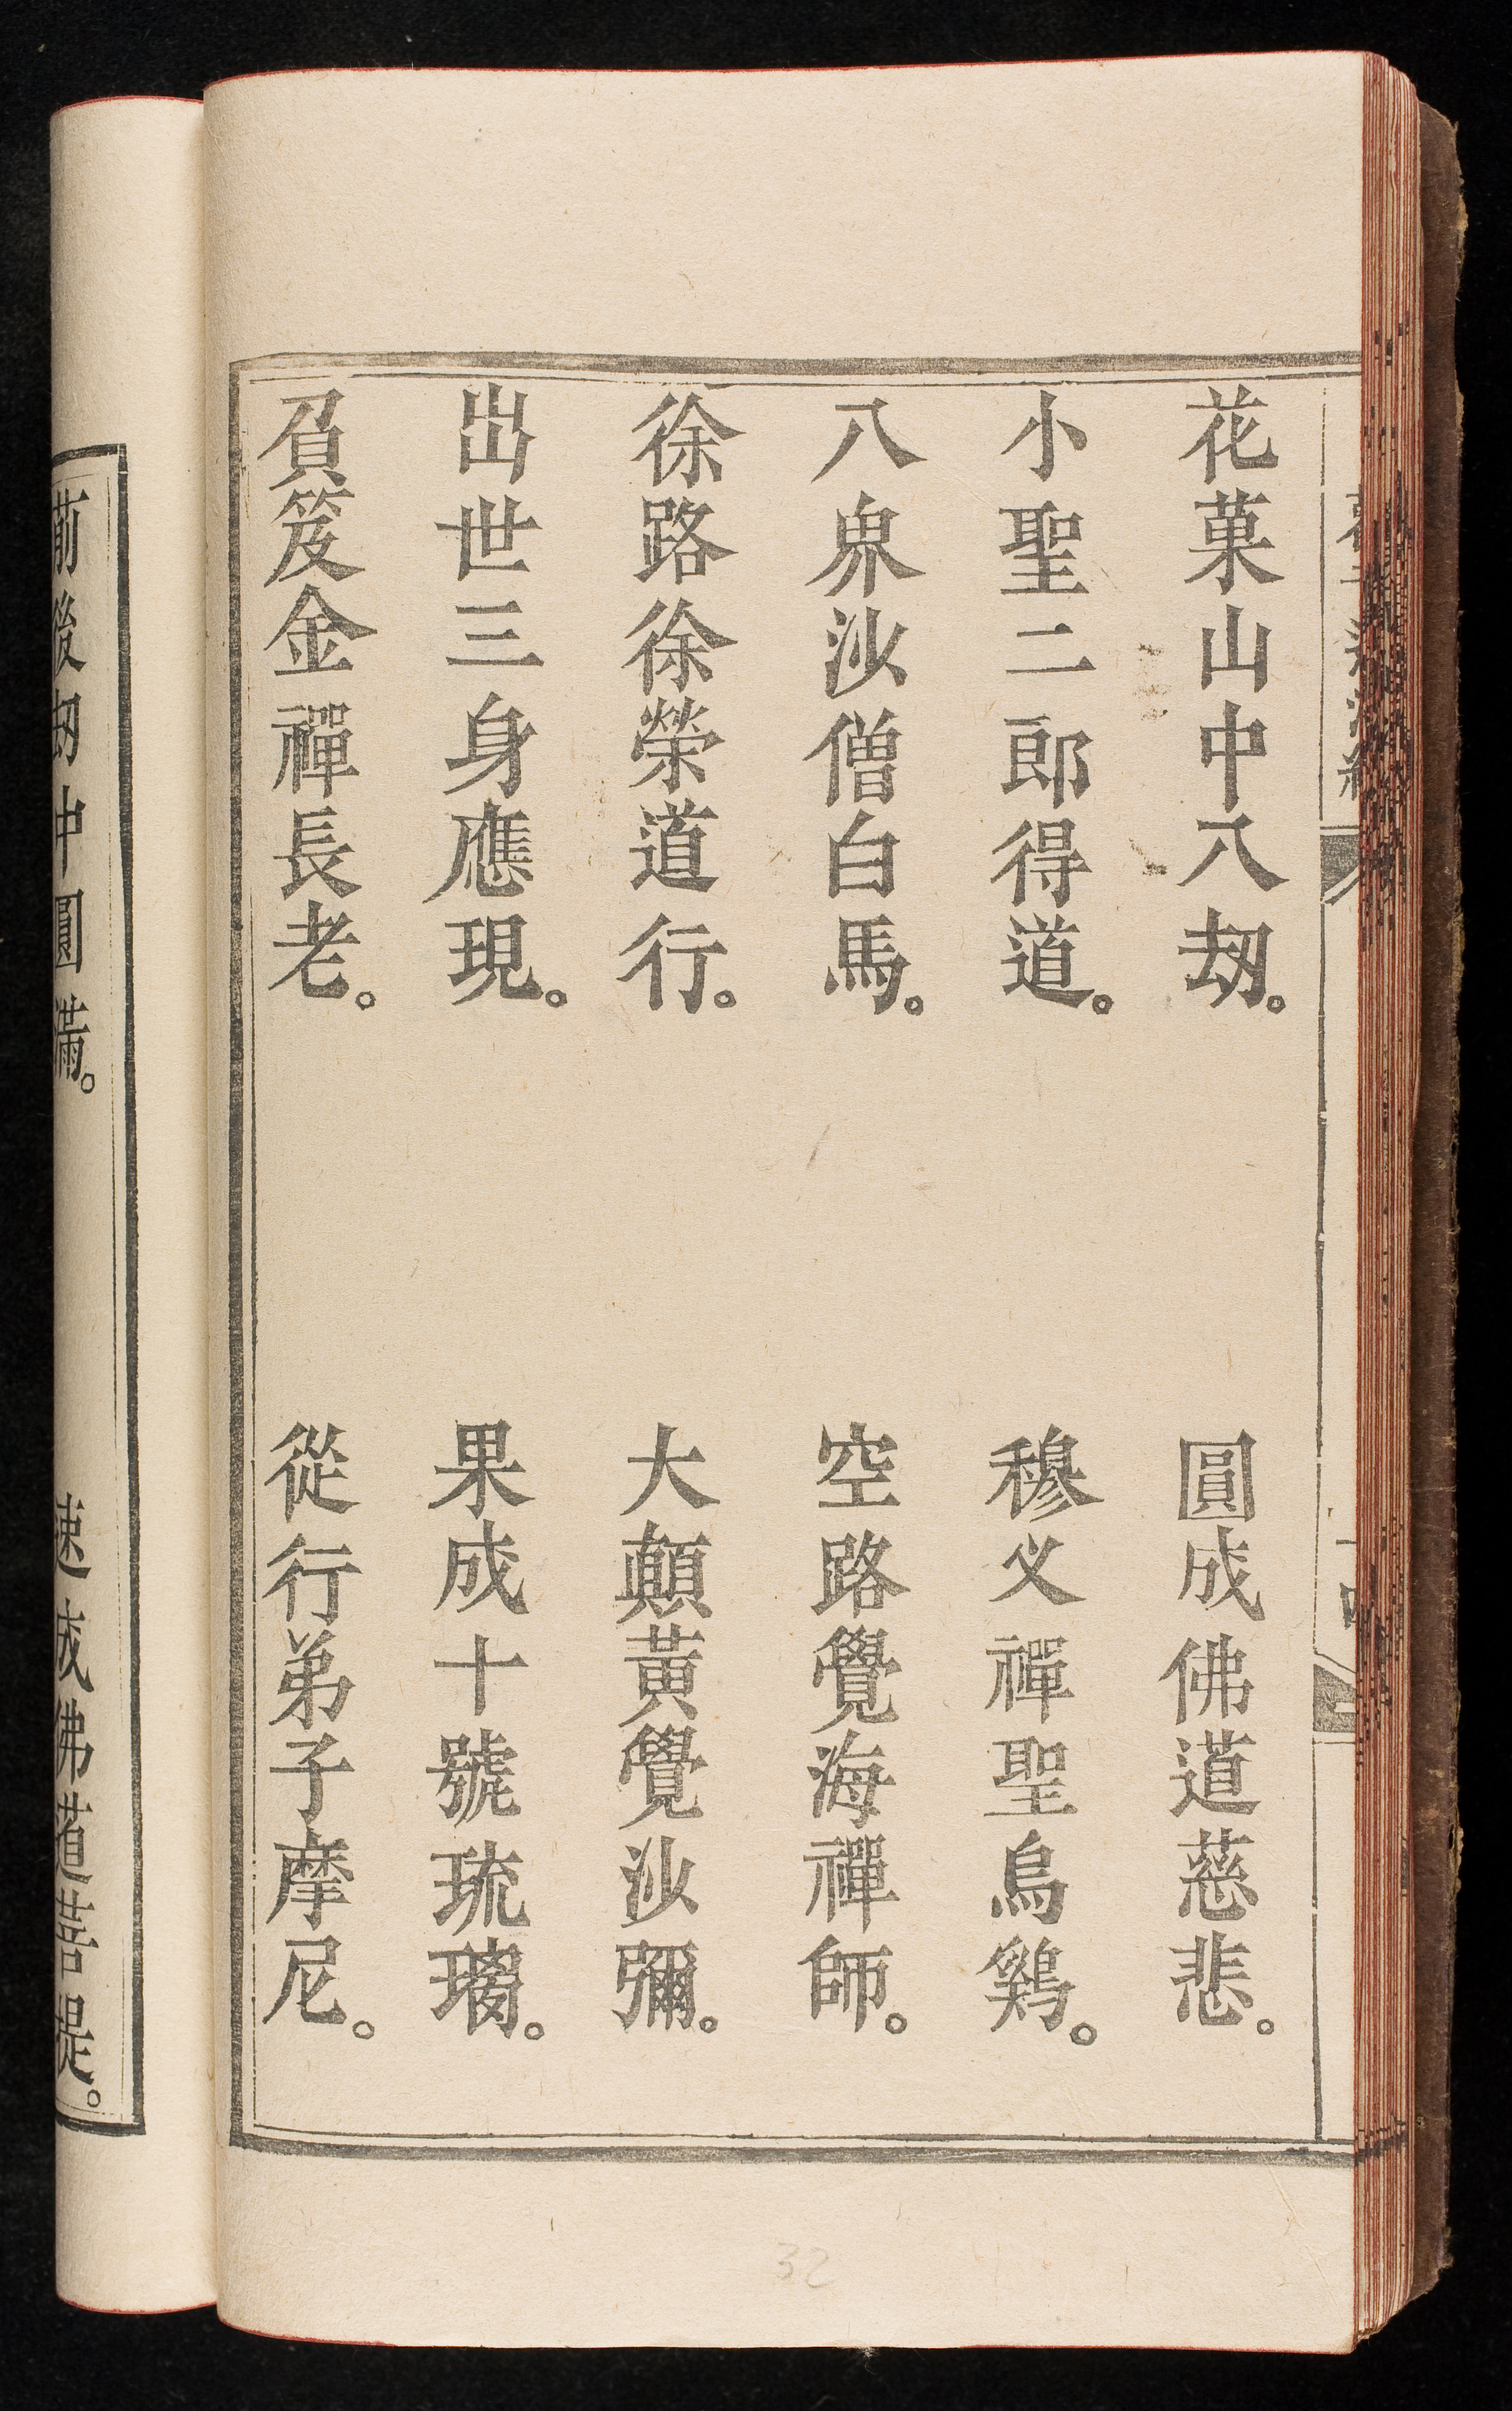 花菓山中八刼。 圓成佛道慈悲。
小聖二郎得道。 穆义禪聖鳥鷄。
八界沙僧白馬。 空路覺海禪師。
徐路徐榮道行。 大顛黃覺沙彌。
出世三身應現。 果成十號琉璃。
負笈金禪長老。 從行弟子摩尼。
前後刼中圓滿。 速成佛道菩提。
32